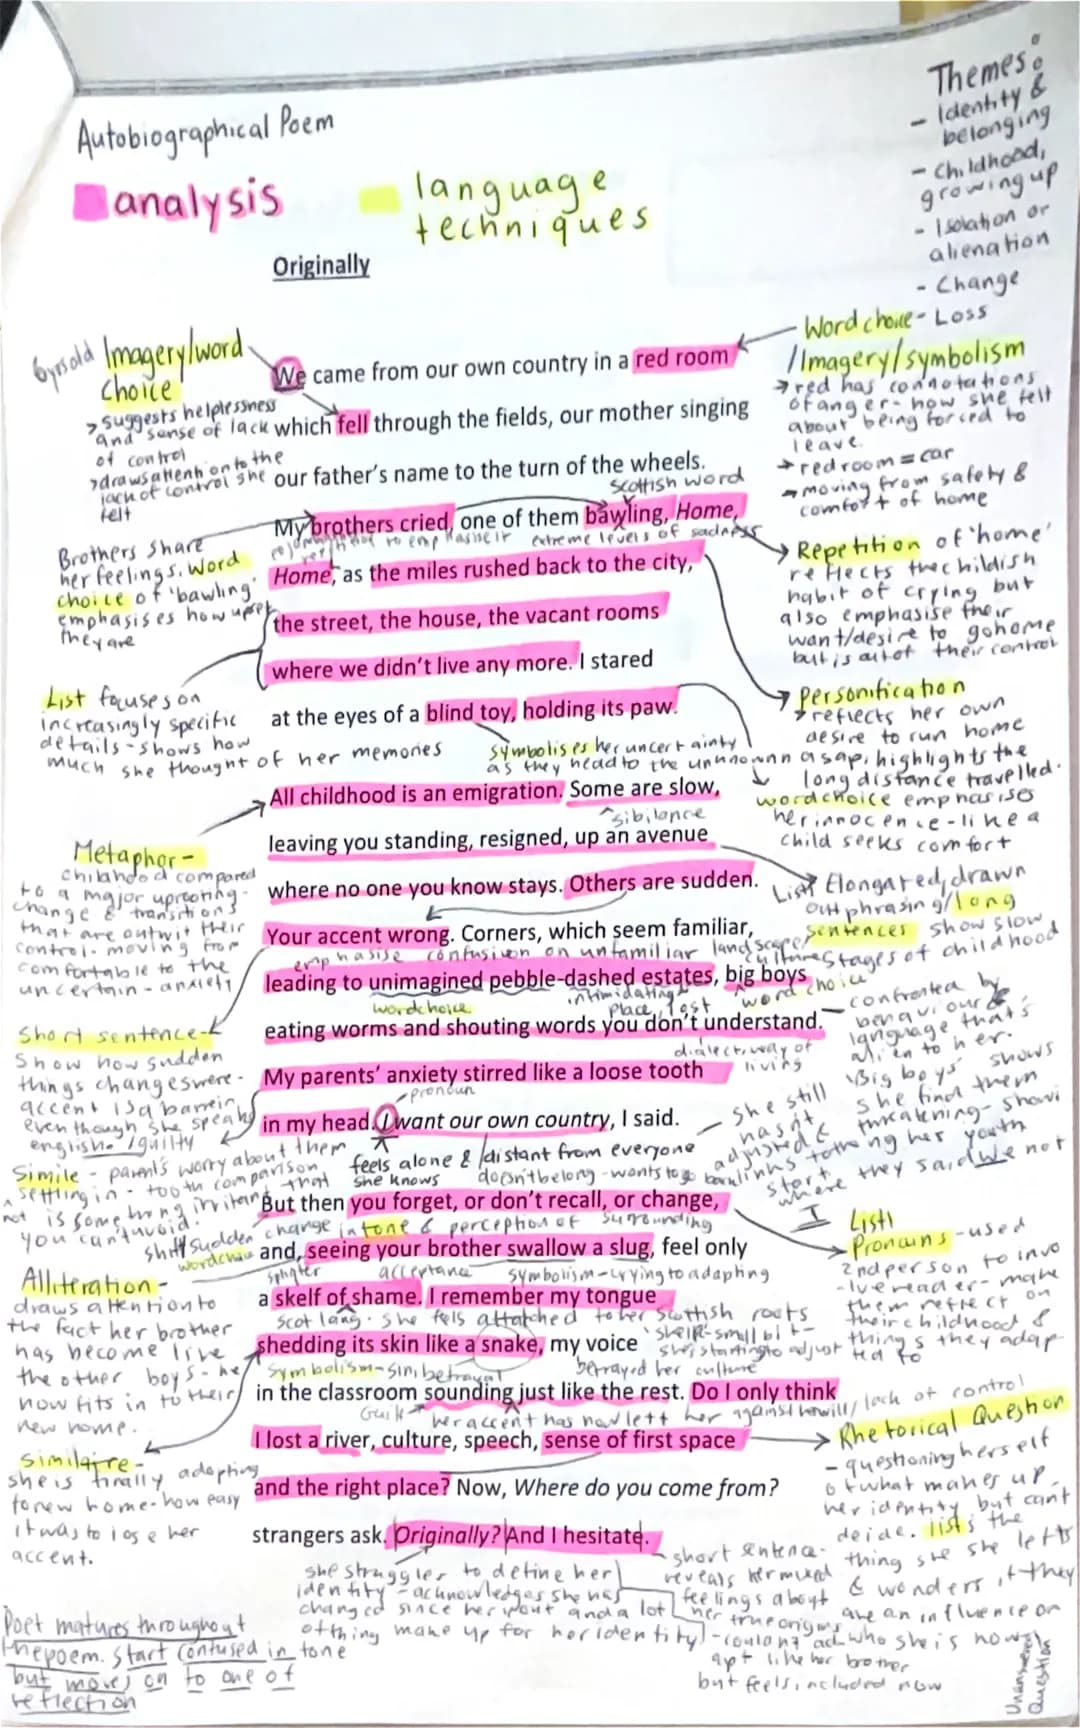 Autobiographical Poem
analysis
language
techniques
Themes:
- Identity &
belonging
- Childhood,
growing up
- Isolation or
alienation
- Change
Originally
6yrs old
Imagery/word
choice
> suggests helplessness
and sense of lack
of control
> draws attenti on to the
lack of control she
felt
Word choice - Loss
/Imagery/symbolism
→ red has connotations
of anger - how she felt
about being forced to
leave.
→ red room = car
→ moving from safety &
comfort of home
We came from our own country in a red room
which fell through the fields, our mother singing
our father's name to the turn of the wheels.
scottish word
My brothers cried, one of them bawling, Home,
extreme levels of sadness
Home, as the miles rushed back to the city,
the street, the house, the vacant rooms
where we didn't live any more. I stared
at the eyes of a blind toy, holding its paw.
Brothers share
her feelings. Word
choice of 'bawling'
emphasises how upset
they are
List focuses on
increasingly specific
details - shows how
much she thought of her memories
Repetition of 'home'
reflects the childish
habit of crying but
also emphasise their
want/desire to go home
but is out of their control
Personification
→ reflects her own
desire to run home
asap, highlights the
long distance travelled.
symbolises her uncertainty
as they head to the unknown
word choice emphasises
her innocence - like a
child seeks comfort
All childhood is an emigration. Some are slow,
sibilance
leaving you standing, resigned, up an avenue
where no one you know stays. Others are sudden.
Your accent wrong. Corners, which seem familiar,
emphasise confusion on unfamiliar landscape/
culture
leading to unimagined pebble-dashed estates, big boys
word choice
intimidating
place, lost
word choice
eating worms and shouting words you don't understand.
dialect, way of
living
My parents' anxiety stirred like a loose tooth
pronoun
in my head. I want our own country, I said.
feels alone & distant from everyone
she knows
doesn't belong - wants to go back
Metaphor -
childhood compared
to a major uprooting -
change & transitions
that are outwit their
control - moving from
comfortable to the
uncertain - anxiety
Short sentence -
Show how sudden
things changes were -
accent is a barrier
even though she speaks
english - /guilty
Simile - parents worry about them
settling in - tooth comparison
is something irritant that
you can't avoid.
List
Elongated, drawn
out phrasing/long
sentences show slow
stages of childhood
confronted by
behaviour &
language that's
alien to her.
'Big boys' shows
she find them
threatening - shows
links to her youth
she still
hasn't
adjusted &
start where they said We not
I
But then you forget, or don't recall, or change,
shift sudden change in tone & perception of surrounding
word choice
and, seeing your brother swallow a slug, feel only
splinter
acceptance
symbolism - trying to adapting
a skelf of shame. I remember my tongue
scot lang. she fels attatched to her Scottish roots
'skelf' - small bit -
she starting to adjust
shedding its skin like a snake, my voice
symbolism - sin, betrayal
betrayed her culture
in the classroom sounding just like the rest. Do I only think
Guilt
her accent has now left her against her will/lack of control
I lost a river, culture, speech, sense of first space
and the right place? Now, Where do you come from?
strangers ask. Originally? And I hesitate.
Alliteration -
draws attention to
the fact her brother
has become like
the other boys - he
now fits in to their
new home.
she is finally adapting
to new home - how easy
it was to lose her
accent.
List
Pronouns - used
2nd person to invo
-lve reader - make
them reflect on
their childhood &
things they adap
ted to
Rhetorical Question
- questioning herself
of what makes up
her identity but can't
deide. lists the
thing she she lefts
& wonders if they
are an influence on
who she is now
she struggles to define her
identity - acknowledges she has
changed since her and a lot
of thing make up for her identity
short sentence -
reveals her mixed
feelings about
her true origins
- couldn't ad
apt like her brother
but feels included now
Unanswered
Question
Poet matures throughout
the poem. Start confused in tone
but moves on to one of
reflection